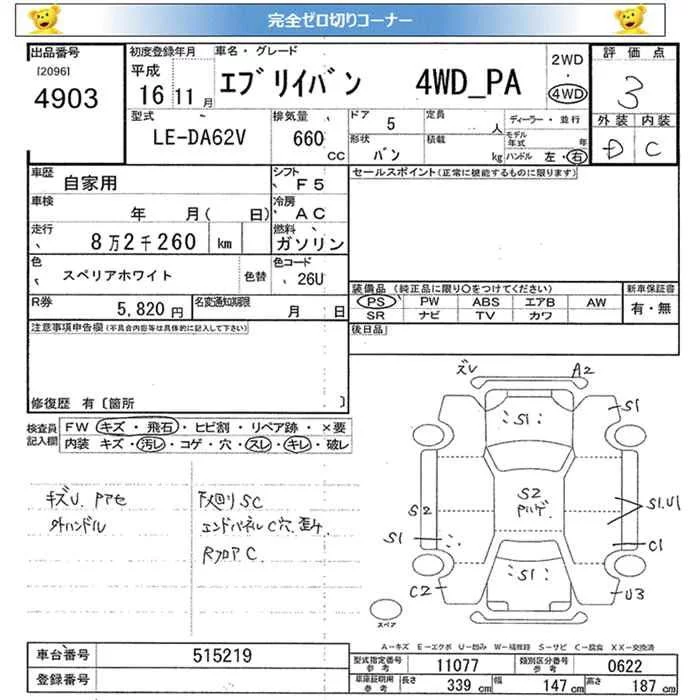 完全ゼロ切りコーナー
出品番号
[2096]
4903
初度登録年月
平成
16 11月
車名・グレード
エブリイバン 4WD_PA
2WD
・
4WD
評価点
3
外装 内装
D C
型式
LE-DA62V
排気量
660
CC
ドア
5
定員
人
形状
バン
積載
kg
ディーラー・並行
モデル年式
年
ハンドル 左・右
車歴
自家用
シフト
F5
車検
年 月( 日)
冷房
AC
走行
8万2千260 km
燃料
ガソリン
色
スペリアホワイト
色替
色コード
26U
R券
5,820円
名変通知期限
月 日
セールスポイント(正常に機能するものに限ります)
装備品(純正品に限り○をつけてください)
PS PW ABS エアB AW
SR ナビ TV カワ
新車保証書
有・無
後日品
注意事項申告欄(不具合内容等は具体的に記入して下さい)
修復歴 有〔箇所 〕
検査員
記入欄
FW キズ・飛石・ヒビ割・リペア跡・×要
内装 キズ・汚レ・コゲ・穴・スレ・キレ・破レ
キズU Pアセ
外ハンドル
下廻りSC
エンドパネルC穴、歪み
RフロアC
ズレ
A2
S1
S1
S2
S2
S1.U1
S1
C1
S1
C2
U3
スペア
A-キズ E-エクボ U-凹み W-補修跡 S-サビ C-腐食 XX-交換済
車台番号
515219
登録番号
型式指定番号
参考
11077
類別区分番号
参考
0622
車庫証明用
参考
長さ
339 cm
幅
147 cm
高さ
187 cm